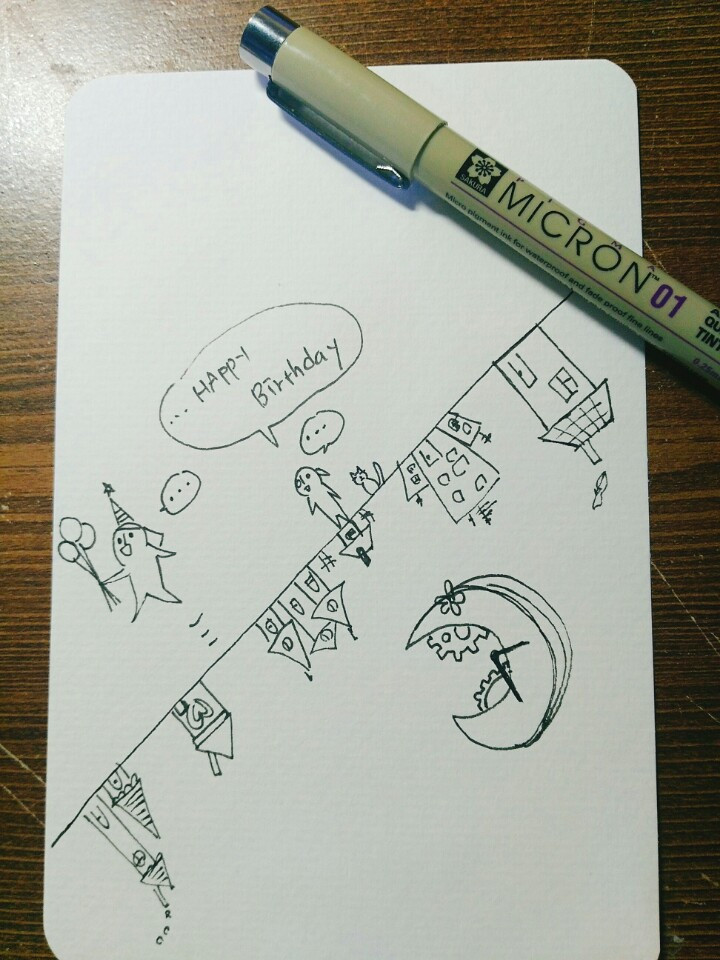 SAKURA
PIGMA
MICRON™ 01
Micro pigment ink for waterproof and fade proof fine lines
... HAppy
Birthday
...
...